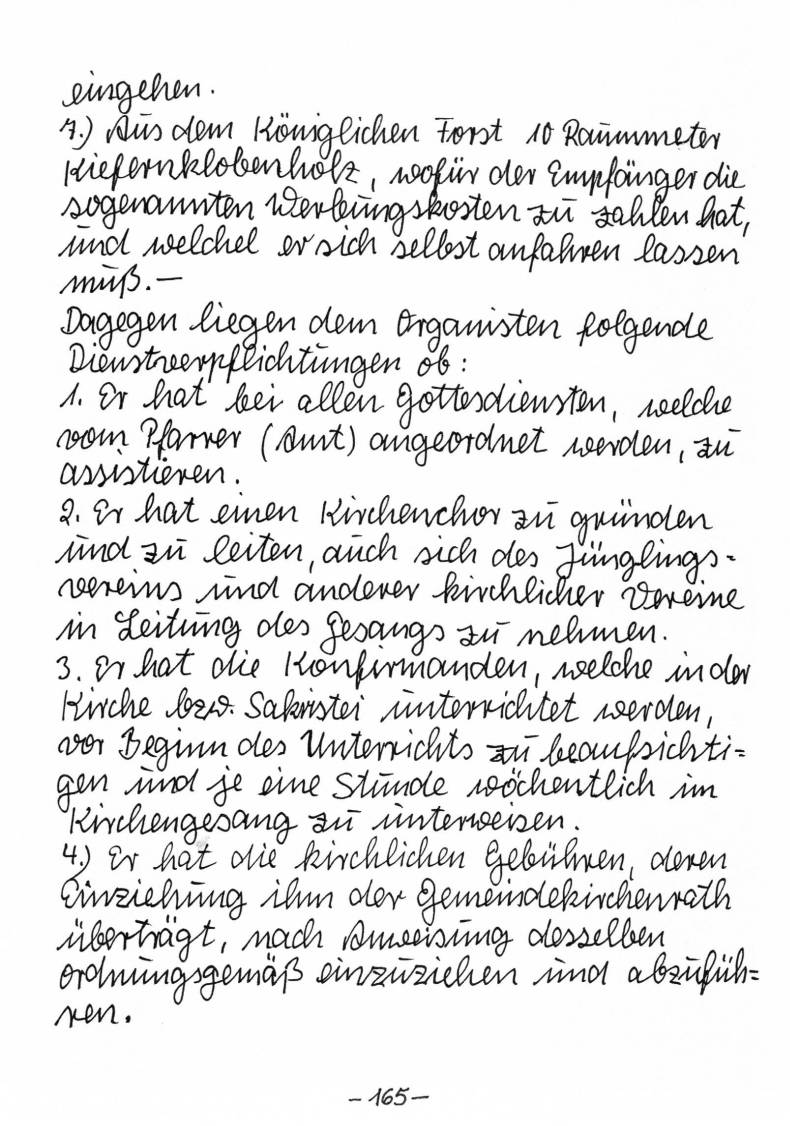 eingehen.
7.) Aus dem Königlichen Forst 10 Raummeter
Kiefernklobenholz, wofür der Empfänger die
sogenannten Werbungskosten zu zahlen hat,
und welchel er sich selbst anfahren lassen
muß.—
Dagegen liegen dem Organisten folgende
Dienstverpflichtungen ob:
1. Er hat bei allen Gottesdiensten, welche
vom Pfarrer (Amt) angeordnet werden, zu
assistieren.
2. Er hat einen Kirchenchor zu gründen
und zu leiten, auch sich des Jünglings-
vereins und anderer kirchlicher Vereine
in Leitung des Gesangs zu nehmen.
3. Er hat die Konfirmanden, welche in der
Kirche bzw. Sakristei unterrichtet werden,
vor Beginn des Unterrichts zu beaufsichti=
gen und je eine Stunde wöchentlich im
Kirchengesang zu unterweisen.
4.) Er hat die kirchlichen Gebühren, deren
Einziehung ihm der Gemeindekirchenrath
überträgt, nach Anweisung desselben
ordnungsgemäß einzuziehen und abzufüh=
ren.
-165-